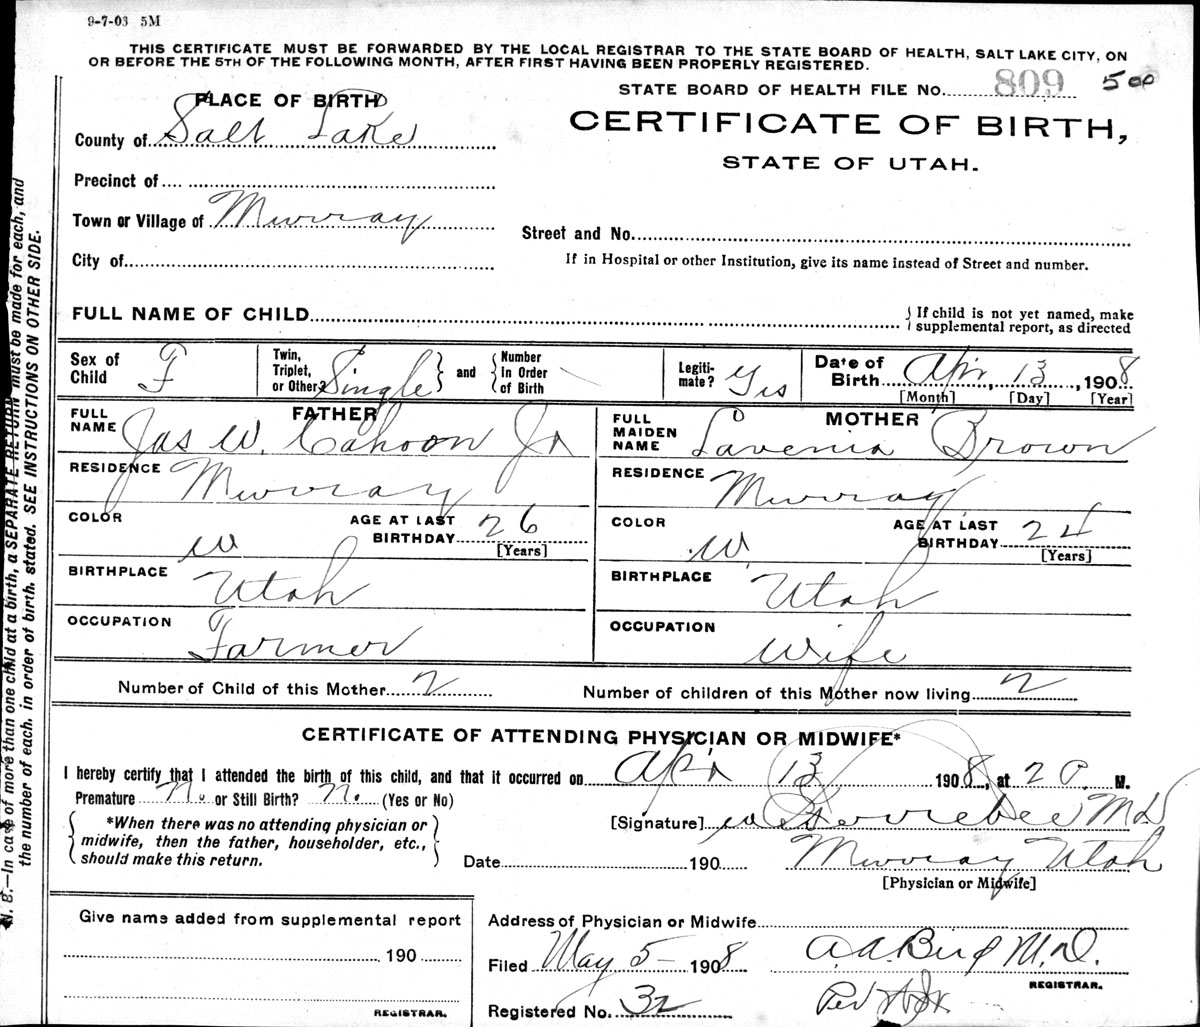 9-7-03 5M
THIS CERTIFICATE MUST BE FORWARDED BY THE LOCAL REGISTRAR TO THE STATE BOARD OF HEALTH, SALT LAKE CITY, ON
OR BEFORE THE 5TH OF THE FOLLOWING MONTH, AFTER FIRST HAVING BEEN PROPERLY REGISTERED.
STATE BOARD OF HEALTH FILE No. 809 500
CERTIFICATE OF BIRTH,
STATE OF UTAH.
PLACE OF BIRTH
County of Salt Lake
Precinct of
Town or Village of Murray
Street and No.
City of
If in Hospital or other Institution, give its name instead of Street and number.
FULL NAME OF CHILD
{ If child is not yet named, make
supplemental report, as directed
Sex of Child F
Twin, Triplet, or Other? Single } and { Number In Order of Birth
Legitimate? Yes
Date of Birth Apr, 13, 1908
[Month] [Day] [Year]
FATHER
FULL NAME Jas W. Cahoon Jr
RESIDENCE Murray
COLOR W
AGE AT LAST BIRTHDAY 26
[Years]
BIRTHPLACE Utah
OCCUPATION Farmer
MOTHER
FULL MAIDEN NAME Lavenia Brown
RESIDENCE Murray
COLOR W.
AGE AT LAST BIRTHDAY 24
[Years]
BIRTHPLACE Utah
OCCUPATION Wife
Number of Child of this Mother 2
Number of children of this Mother now living 2
CERTIFICATE OF ATTENDING PHYSICIAN OR MIDWIFE*
I hereby certify that I attended the birth of this child, and that it occurred on Apr 13 1908, at 2 P. M.
Premature No or Still Birth? No. (Yes or No)
{ *When there was no attending physician or
midwife, then the father, householder, etc.,
should make this return. }
[Signature] M D
Date 190
Murray Utah
[Physician or Midwife]
Give name added from supplemental report
190
REGISTRAR.
Address of Physician or Midwife
Filed May 5 - 1908
A. A. Bird M.D.
REGISTRAR.
Registered No. 32
Per
N. B.—In case of more than one child at a birth, a SEPARATE RETURN must be made for each, and
the number of each, in order of birth, stated. SEE INSTRUCTIONS ON OTHER SIDE.